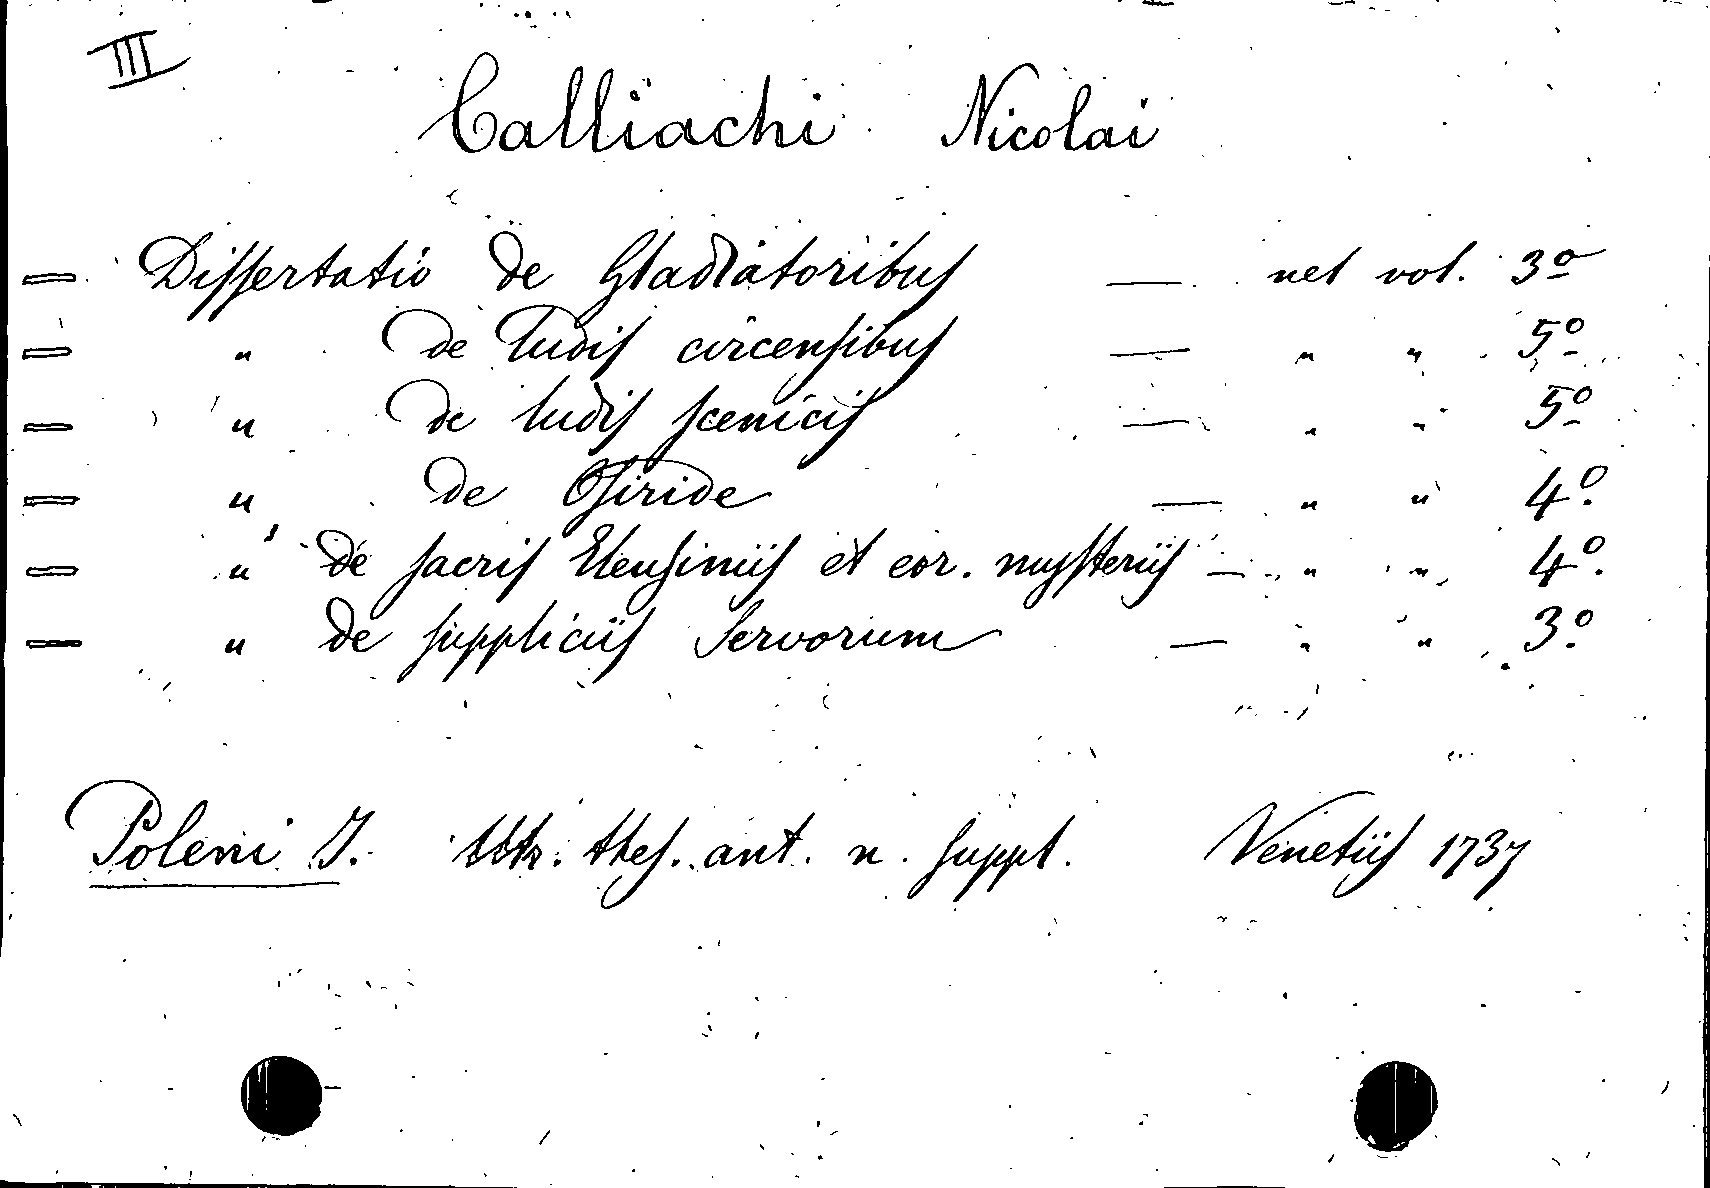 III
Calliachi Nicolai
= Dissertatio de Gladiatoribus — nel vol. 3º
= " de Ludis circensibus — " " 5º
= " de ludis scenicis — " " 5º
= " de Osiride — " " 4º.
= " de sacris Eleusiniis et eor. mysteriis — " " 4º.
= " de suppliciis Servorum — " " 3º
Poleni J. Utr. thes. ant. n. suppl. Venetiis 1737